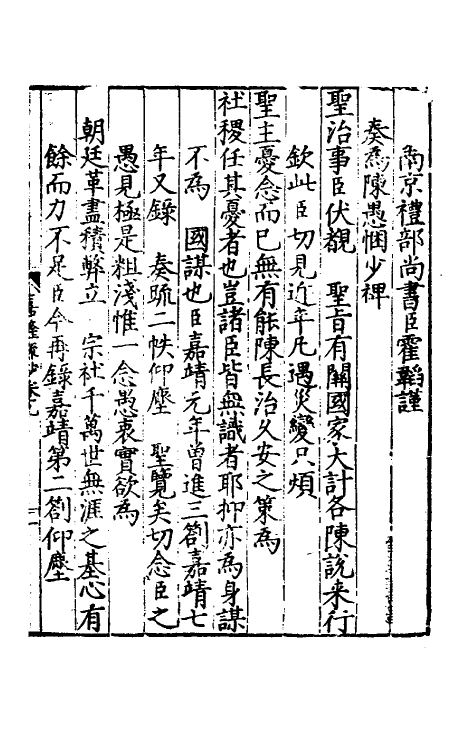 南京禮部尚書臣霍韜謹
奏為陳愚悃少裨
聖治事臣伏覩　聖旨有關國家大計各陳說来行
欽此臣切見近年凡遇災變只煩
聖主憂念而巳無有能陳長治久安之策為
社稷任其憂者也豈諸臣皆無識者耶抑亦為身謀
不為　國謀也臣嘉靖元年曾進三劄嘉靖七
年又錄　奏疏二帙仰塵　聖覽矣切念臣之
愚見極是粗淺惟一念愚衷實欲為
朝廷革盡積弊立　宗社千萬世無涯之基心有
餘而力不足臣今再錄嘉靖第二劄仰塵